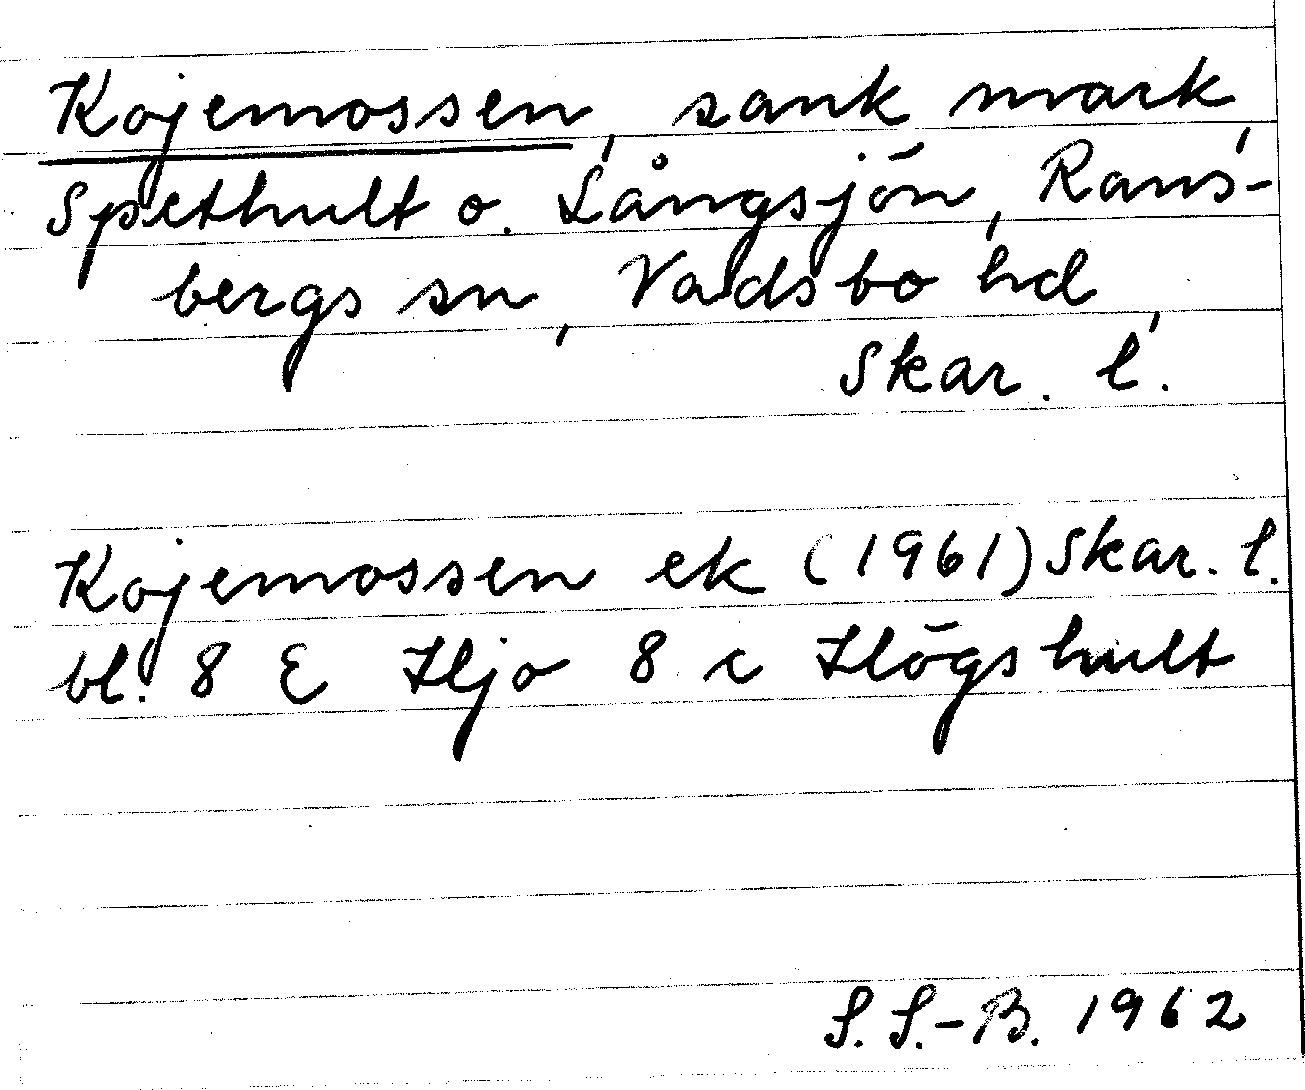 Kojemossen, sank mark,
Spethult o. Långsjön, Rans-
bergs sn, Vadsbo hd,
Skar. l.
Kojemossen ek (1961) Skar. l.
bl. 8 E Hjo 8 c Högshult
S. S.-B. 1962